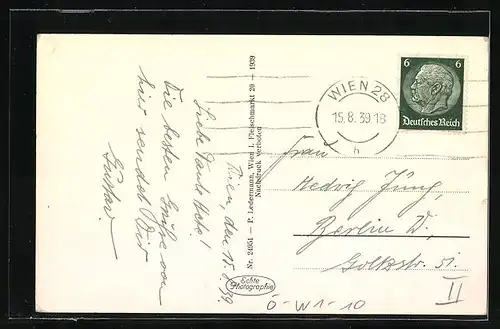 Wien, den 15.8.39.
Liebe Tante Hete!
Die besten Grüße von
hier sendet Dir
Gustav
Nr. 24951 — P. Ledermann, Wien I, Fleischmarkt 20 — 1939
Nachdruck verboten
Echte
Photographie
WIEN 28
15.8.39 18
h
6 6
Deutsches Reich
Frau
Hedwig Jung,
Berlin W,
Goltzstr. 51.
II
Ö-W1-10